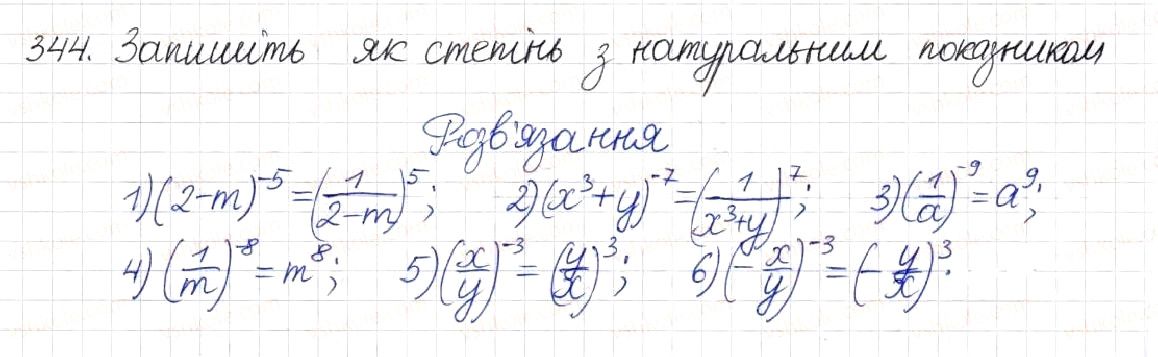 344. Запишіть як степінь з натуральним показником
Розв'язання
1) (2-m)^{-5} = (\frac{1}{2-m})^5; 2) (x^3+y)^{-7} = (\frac{1}{x^3+y})^7; 3) (\frac{1}{a})^{-9} = a^9;
4) (\frac{1}{m})^{-8} = m^8; 5) (\frac{x}{y})^{-3} = (\frac{y}{x})^3; 6) (-\frac{x}{y})^{-3} = (-\frac{y}{x})^3.